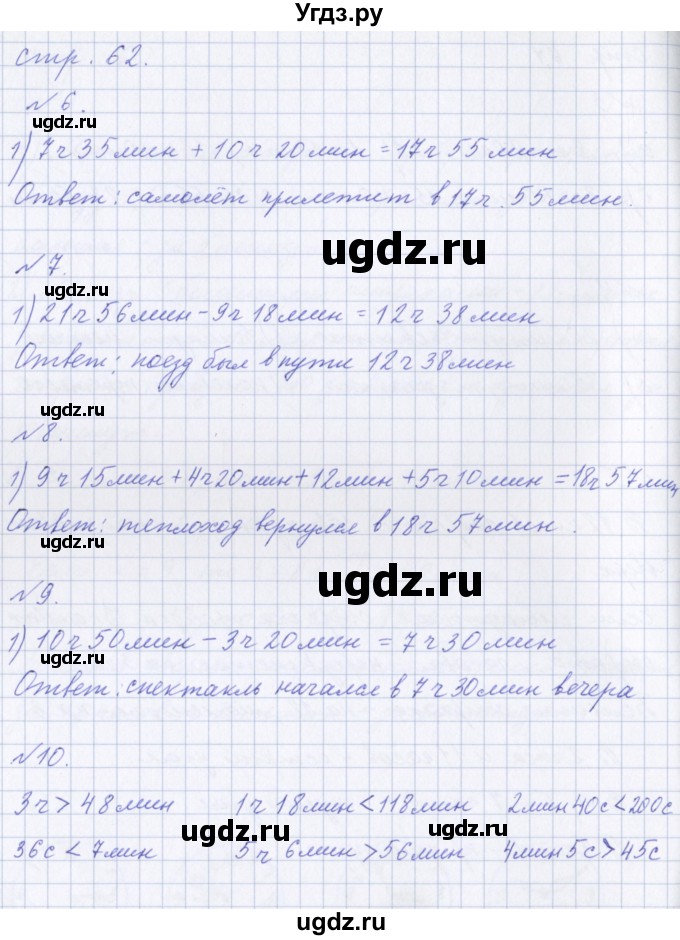 Угдз.ру
стр. 62.
№6.
1) 7ч 35мин + 10ч 20мин = 17ч 55мин
Ответ: самолёт прилетит в 17ч. 55мин.
ugdz.ru
№7.
ugdz.ru
1) 21ч 56мин - 9ч 18мин = 12ч 38мин
Ответ: поезд был в пути 12ч 38мин
ugdz.ru
№8.
1) 9ч 15мин + 4ч 20мин + 12мин + 5ч 10мин = 18ч 57мин
Ответ: теплоход вернулся в 18ч 57мин.
ugdz.ru
ugdz.ru
№9.
1) 10ч 50мин - 3ч 20мин = 7ч 30мин
ugdz.ru
Ответ: спектакль начался в 7ч 30мин вечера
№10.
3ч > 48мин 1ч 18мин < 118мин 2мин 40с < 200с
ugdz.ru ugdz.ru
36с < 7мин 5ч 6мин > 56мин 4мин 5с > 45с
ugdz.ru